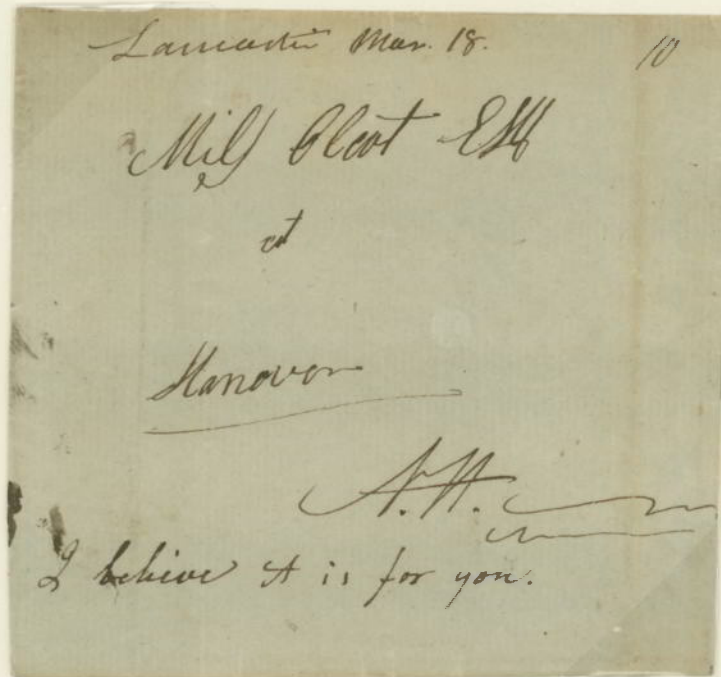 Lancaster Mar. 18. 10
Mills Olcot Esq
at
Hanover
N.H.
I believe it is for you.